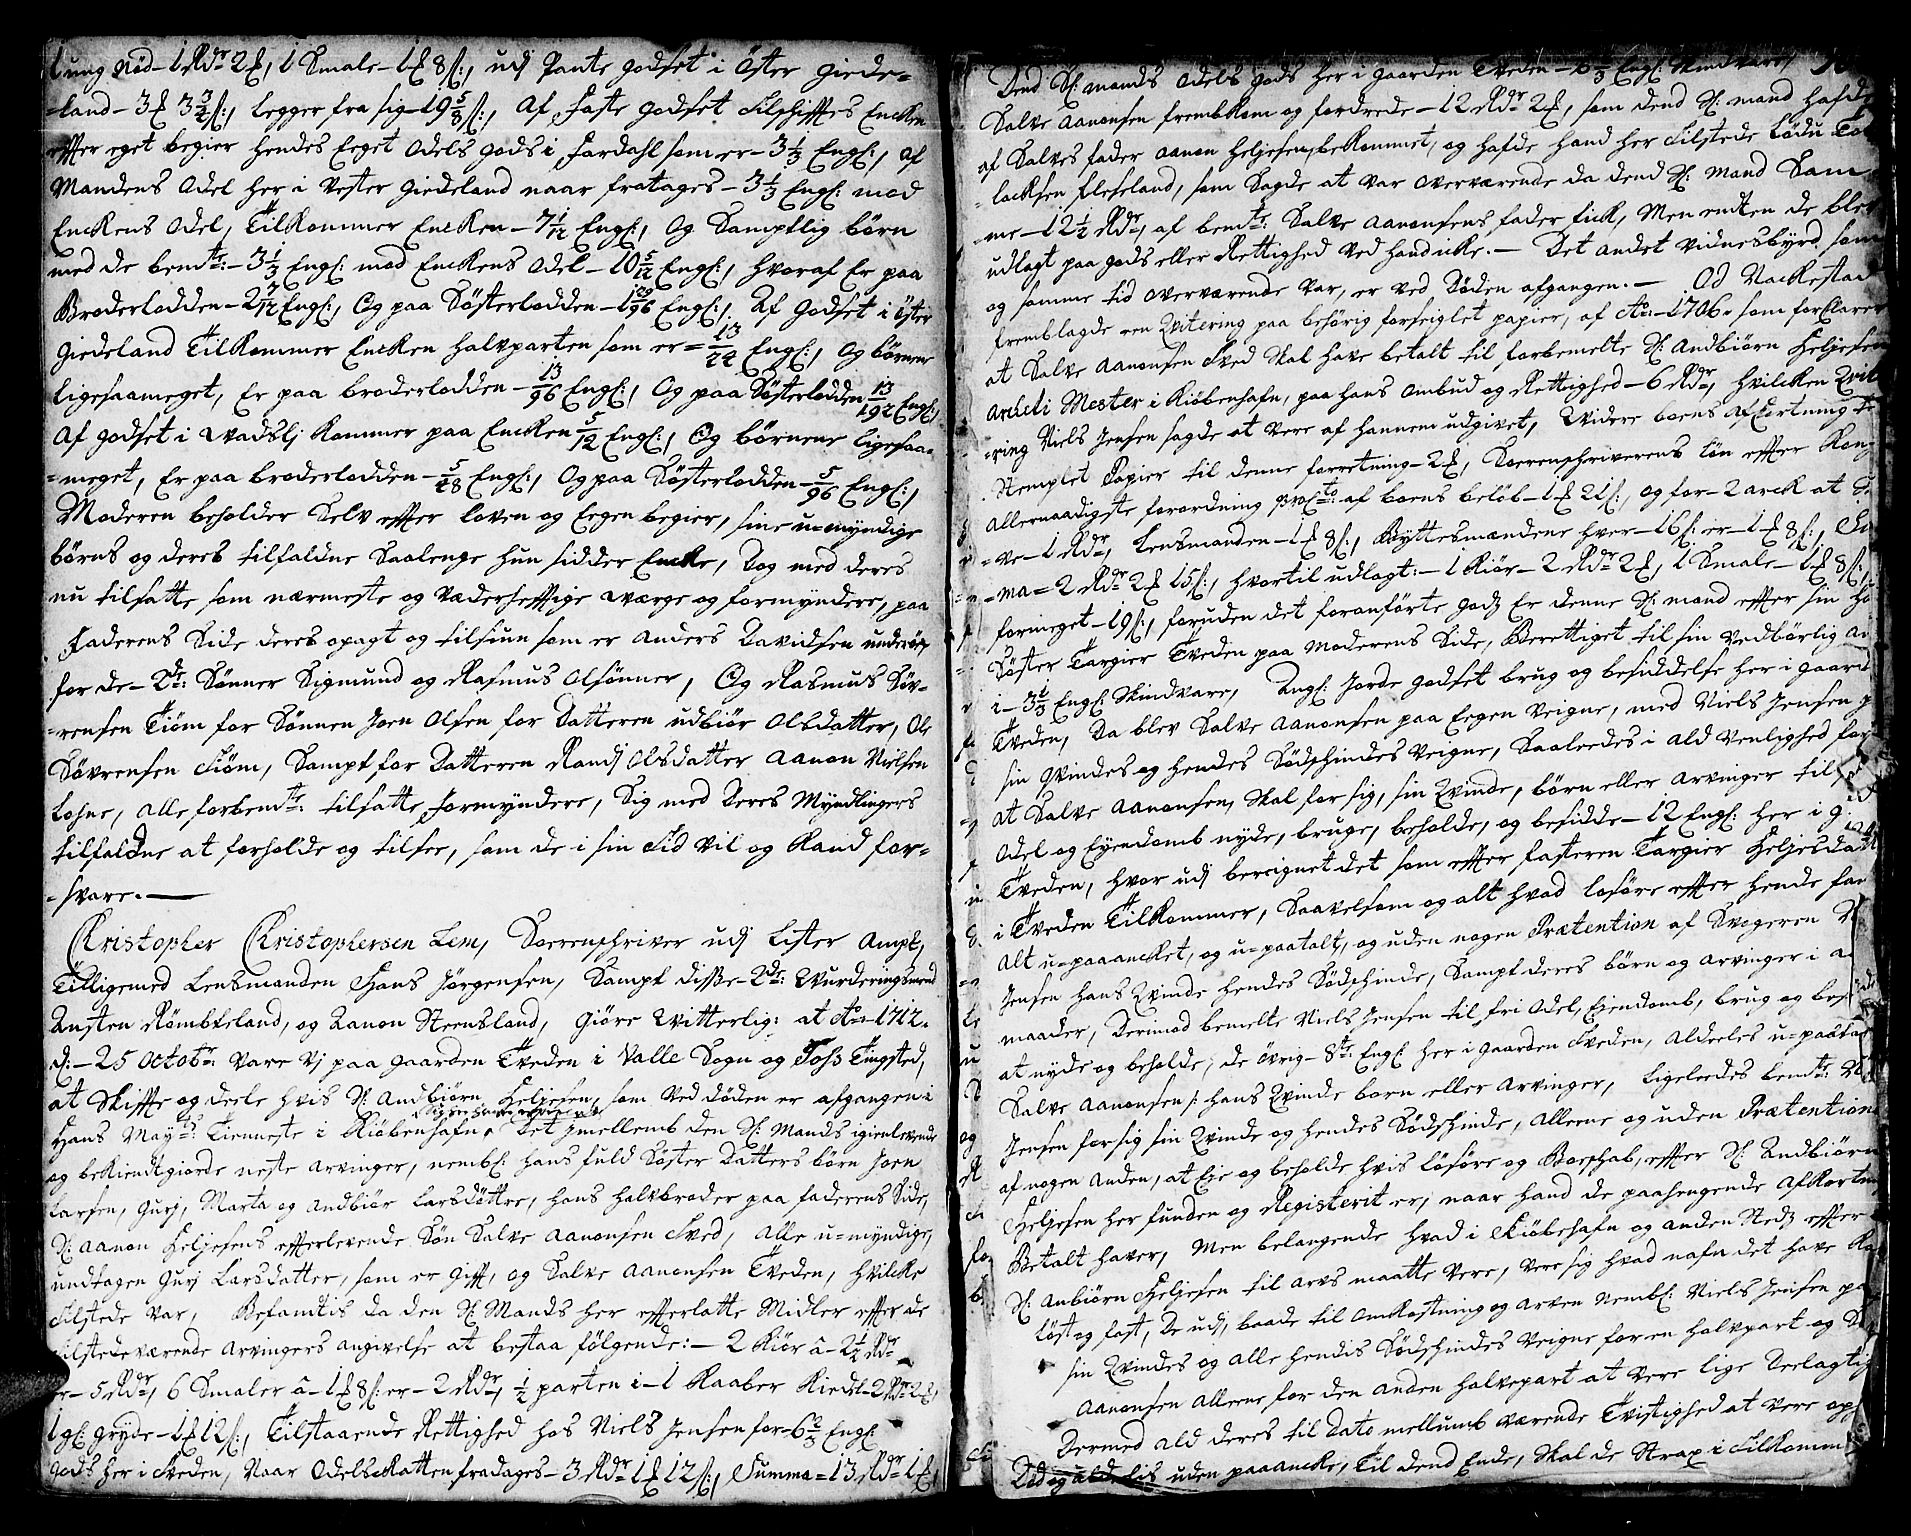 ung Nød – 1 Rdr 2 ₰, 1 Smale – 1 ₰ 8 ſ:, udj Pante godset i Öster Giede=
=land – 3 ₰ 3 3/4 ſ:, legger fra sig – 19 5/8 ſ:, Af faste godset Tilschifftes Encken
effter eget begier hendes Eeget Odels gods i Fardahl som er – 3 1/3 Engl:, af
Mandens Odel her i Vester Giedeland naar fratages – 3 1/3 Engl: mod
Enckens Odel, Tilkommer Encken – 7 1/12 Engl:, og Samptlig børn
med de bemte: – 3 1/3 Engl: mod Enckens Odel – 10 5/12 Engl:, hvoraf Er paa
Broderlodden – 2 7/12 Engl:, Og paa Søsterlodden – 1 29/96 Engl:, Af godset i Öster
Giedeland Tilkommer Encken halvparten som er = 13/24 Engl:, Og børnene
ligesaameget, Er paa broderlodden – 13/96 Engl:, Og paa Søsterlodden 13/192 Engl:,
Af godset i Vadslj kommer paa Encken 5/12 Engl:, Og børnene ligesaa=
=meget, Er paa broderlodden – 5/48 Engl:, Og paa Søsterlodden – 5/96 Engl:,
Moderen beholder Selv effter loven og Eegen begier, sine u=myndige
børns og deres tilfaldne Saalenge hun sidder Encke, Dog med deres
nu tilsatte som nærmeste og Vederhefftige værge og formyndere, paa
Faderens Side deres opagt og tilsiun som er Anders Davidsen
for de – 2de: Sønner Sigmund og Rasmus Olsønner, Og Rasmus Søv=
=rensen Tiøm for Sønnen Joen Olsen for Datteren Udbiør Olsdatter, Ole
Søvrensen Tiøm, Sampt for Datteren Randj Olsdatter Aanon Nielsen
Lohne, alle forbemte: tilsatte formyndere, Sig med deres Myndlingers
tilfaldne at forholde og tilsee, som de i sin Tid vil og Kand for=
=svare. —
Christopher Christophersen Lem, Sorenschriver udj Lister Ampt,
Tilligemed Lensmanden Hans Jørgensen, Sampt disse – 2de: Vurderingsmend
Austen Rømbkeland, og Aanon Steensland, Giøre Vitterlig: at Ao: 1712.
d: – 25 Octobr: vare Vj paa gaarden Tveden i Valle Sogn og Tofs Tingsted,
at Skiffte og deele hvis Sl: Andbiørn Heljesen, som ved døden er afgangen i
Hans Mayts: Tienneste i Kiøbenhafn. Det jmellemb den Sl: Mands igienlevende
og bekiendtgiorde neste Arvinger, nembl: hans fuld Søster Datters børn Joen
Larsen, Gurj, Marta og Andbiør Larsdøttre, hans halvbroder paa faderens Side,
Sl: Aanon Heljesens effterlevende Søn Salve Aanonsen Tved, alle u=myndige,
undtagen Gurj Larsdatter, som er gifft, og Salve Aanonsen Tveden, hvilcke
tilstede var, Befandtis da den Sl: Mands her effterlatte Midler effter de
tilstedeværende arvingers angivelse at bestaa følgende: – 2 Kiør â – 2 1/2 Rdr
er – 5 Rdr, 6 Smaler â – 1 ₰ 8 ſ: er – 2 Rdr, 1/2 parten i – 1 Kaaber Kiedel – 2 Rdr 2 ₰,
1 gl: gryde – 1 ₰ 12 ſ:, Tilstaaende Rettighed hos Niels Jensen for – 6 2/3 Engl:
gods her i Tveden, Naar Odelskatten fradages – 3 Rdr 1 ₰ 12 ſ:, Summa = 13 Rdr 1 ₰,
Dend Sl: mands Odels gods her i gaarden Tveden – 6 2/3 Engl: Skindvare,
Salve Aanonsen fremkkom og fordrede – 12 Rdr 2 ₰, som dend Sl: mand hafde
af Salves fader Aanon Heljesen, bekommet, og hafde hand her tilstede
=lacksen Fleseland, som Sagde at var overværende da dend Sl: Mand Sam
=me – 12 1/2 Rdr, af bemte: Salve Aanonsens fader fick, Men endten de blef
udlagt paa gods eller Rettighed ved hand icke. — Det andet vidnesbyrd som
og samme tid overværende var, er ved Døden afgangen. —
fremblagde een Qvitering paa behörig forseiglet papier, af Ao: – 1706. som forclarer
at Salve Aanonsen Tved Skal have betalt til forbemelte Sl: Andbiørn Heljesen
Archeli Mester i Kiøbenhafn, paa hans Ombud og Rettighed – 6 Rdr, hvilcken Qvite
=ring Niels Jensen sagde at vere af hannem udgivet, Videre boens afkortning
Stemplet Papier til denne forretning – 2 ₰, Sorenschriverens løn effter Kon=
Allernaadigste forordning af boens beløb – 1 ₰ 21 ſ:, og for – 2 arck at
=ve – 1 Rdr, Lensmanden – 1 ₰ 8 ſ:, Byttesmændene hver – 16 ſ: er – 1 ₰ 8 ſ:,
=ma = 2 Rdr 2 ₰ 15 ſ:, hvortil udlagt: – 1 Kiör – 2 Rdr 2 ₰, 1 Smale – 1 ₰ 8 ſ:,
formeget – 19 ſ:, foruden det foranførte gods Er denne Sl: mand effter sin
Søster Targier Tveden paa Moderens Side, Berettiget til sin vedbørlig
i – 3 1/3 Engl: Skindvare, Angl: Jorde godset brug og besiddelse her i gaard
Tveden, Da blev Salve Aanonsen paa Eegen veigne, med Niels Jensen
sin Qvindes og hendes Södschindes Veigne, Saaleedes i ald Venlighed for
at Salve Aanonsen, Skal for sig, sin Qvinde, børn eller Arvinger til
Odel og Eyendomb nyde, bruge, beholde, og besidde – 12 Engl: her i
Tveden, hvor udj beregnet det som effter fasteren Targier Heljesdatt
i Tveden Tilkommer, Saavelsom og alt hvad løsøre effter hende
alt u=paaancket, og u=paatalt, og uden nogen Prætention af Svogeren
Jensen hans Qvinde hendes Södschinde, Sampt deres børn og arvinger i
maader, Derimod bemelte Niels Jensen til fri Odel, Eyendomb, brug og
at nyde og beholde, de övrig – 8te: Engl: her i gaarden Tveden, aldeeles u=paatal
Salve Aanonsen, hans Qvinde børn eller Arvinger, ligeledes bemte:
Jensen for sig sin Qvinde og hendes Södschinde, allene og uden Prætention
af nogen anden, at Eje og beholde hvis løsøre og Boeschab, effter Sl: Andbiørn
Heljesen her funden og Registerit er, naar hand de paahengende afkortn
Betalt haver, Men belangende hvad i Kiöbehafn og anden Stedz effter
Sl: Anbiørn Heljesen til arvs maatte vere, vere sig hvad nafn det have
løst og fast, De udj, baade til omkostning og arven nembl: Niels Jensen
sin Qvindes og alle hendis Södschindes Veigne for en halvpart og
Aanonsen allene for den anden halvepart at vere lige Deelagtig
Dermed ald deres til Dato mellumb værende Tvistighed at vere
uden paaancke, Til dend Ende, Skal de Strax i